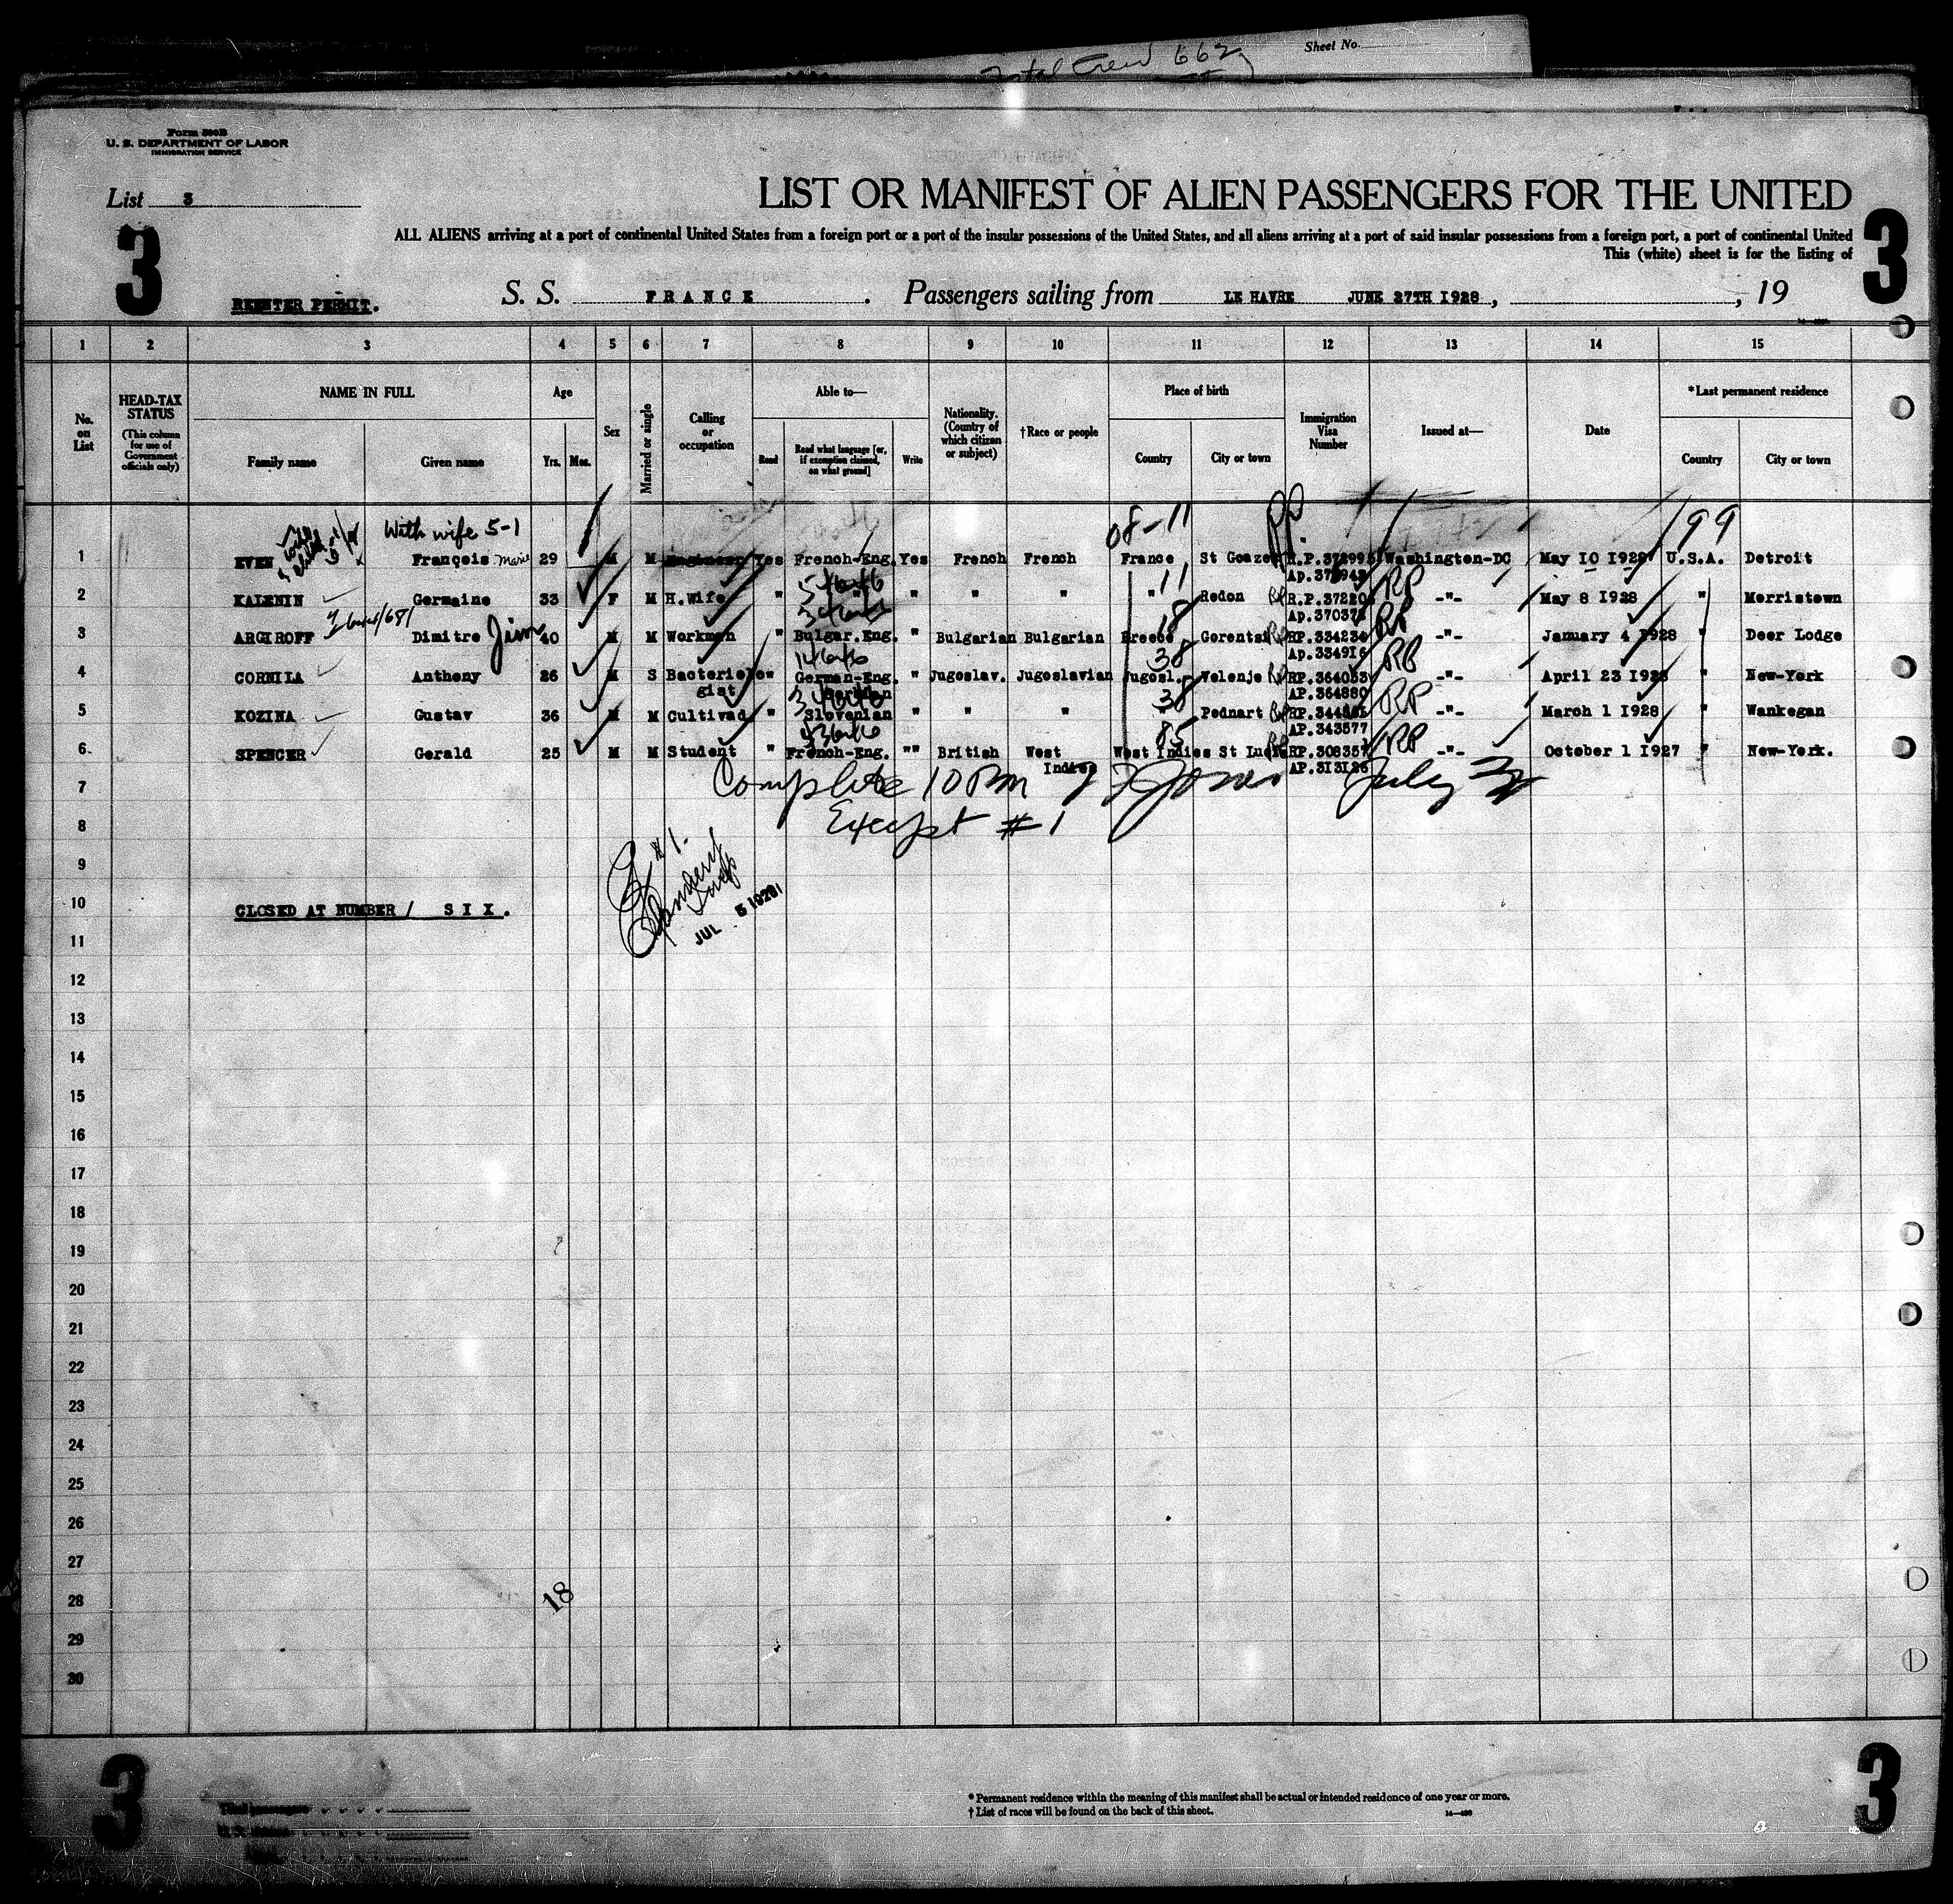 Total Crew 662
Sheet No.
Form 500B
U. S. DEPARTMENT OF LABOR
IMMIGRATION SERVICE
List 3
LIST OR MANIFEST OF ALIEN PASSENGERS FOR THE UNITED
3
3
ALL ALIENS arriving at a port of continental United States from a foreign port or a port of the insular possessions of the United States, and all aliens arriving at a port of said insular possessions from a foreign port, a port of continental United
This (white) sheet is for the listing of
REENTER PERMIT.
S. S. FRANCE. Passengers sailing from LE HAVRE JUNE 27TH 1928, , 19
1 2 3 4 5 6 7 8 9 10 11 12 13 14 15
No. on List
HEAD-TAX STATUS
(This column for use of Government officials only)
NAME IN FULL
Family name
Given name
Age
Yrs. Mos.
Sex
Married or single
Calling or occupation
Able to—
Read
Read what language [or, if exemption claimed, on what ground]
Write
Nationality. (Country of which citizen or subject)
†Race or people
Place of birth
Country
City or town
Immigration Visa Number
Issued at—
Date
*Last permanent residence
Country
City or town
With wife 5-1
08-11
RP
199
1 EVEN François Marie 29 M M Engineer Yes French-Eng. Yes French French France St Goazec Washington-DC May 10 1928 U.S.A. Detroit
11 RP
2 KALENIN Germaine 33 F M H.Wife " " " " " " Redon R.P.37220 -"- May 8 1928 " Morristown
18 RP
3 ARGIROFF Dimitre Jim 40 M M Workman " Bulgar.Eng. " Bulgarian Bulgarian Greece Gorentsi RP.334234 -"- January 4 1928 " Deer Lodge
Ap.334916
38 RP
4 CORNILA Anthony 26 M S Bacteriolo " German-Eng. " Jugoslav. Jugoslavian Jugosl. Velenje RP.364053 -"- April 23 1928 " New-York
gist German AP.364880
38 RP
5 KOZINA Gustav 36 M M Cultivad. " Slovenian " " " " Podnart -"- March 1 1928 " Wankegan
AP.343577
85 RP
6 SPENCER Gerald 25 M M Student " French-Eng. "" British West West Indies St Lucia RP.308357 -"- October 1 1927 " New-York.
Indies AP.313126
7 Complete 10 PM July
8 Except #1
9 #1.
JUL 5 1928
10 CLOSED AT NUMBER / SIX.
11
12
13
14
15
16
17
18
19
20
21
22
23
24
25
26
27
28 18
29
30
3
3
* Permanent residence within the meaning of this manifest shall be actual or intended residence of one year or more.
† List of races will be found on the back of this sheet.